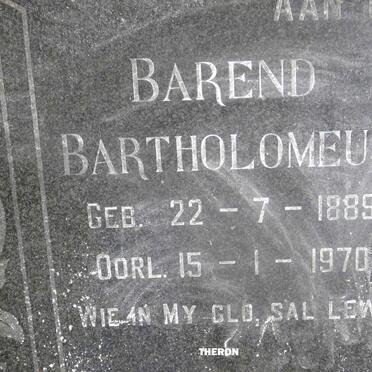 AAN
BAREND
BARTHOLOMEU
GEB. 22 - 7 - 1889
OORL. 15 - 1 - 1970
WIE IN MY GLO, SAL LEW
THERON